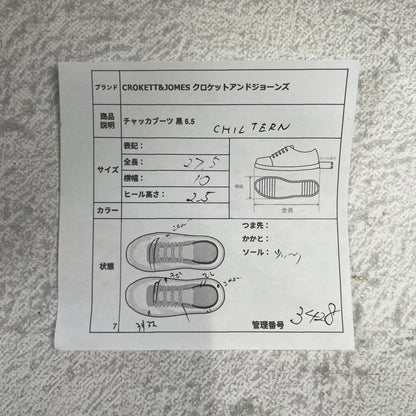 ブランド CROKETT&JOMES クロケットアンドジョーンズ
商品説明 チャッカブーツ 黒 6.5
CHILTERN
サイズ
表記：
全長： 27,5
横幅： 10
ヒール高さ： 2.5
横幅
全長
カラー
状態
つま先：
かかと：
ソール：
7
管理番号 3428